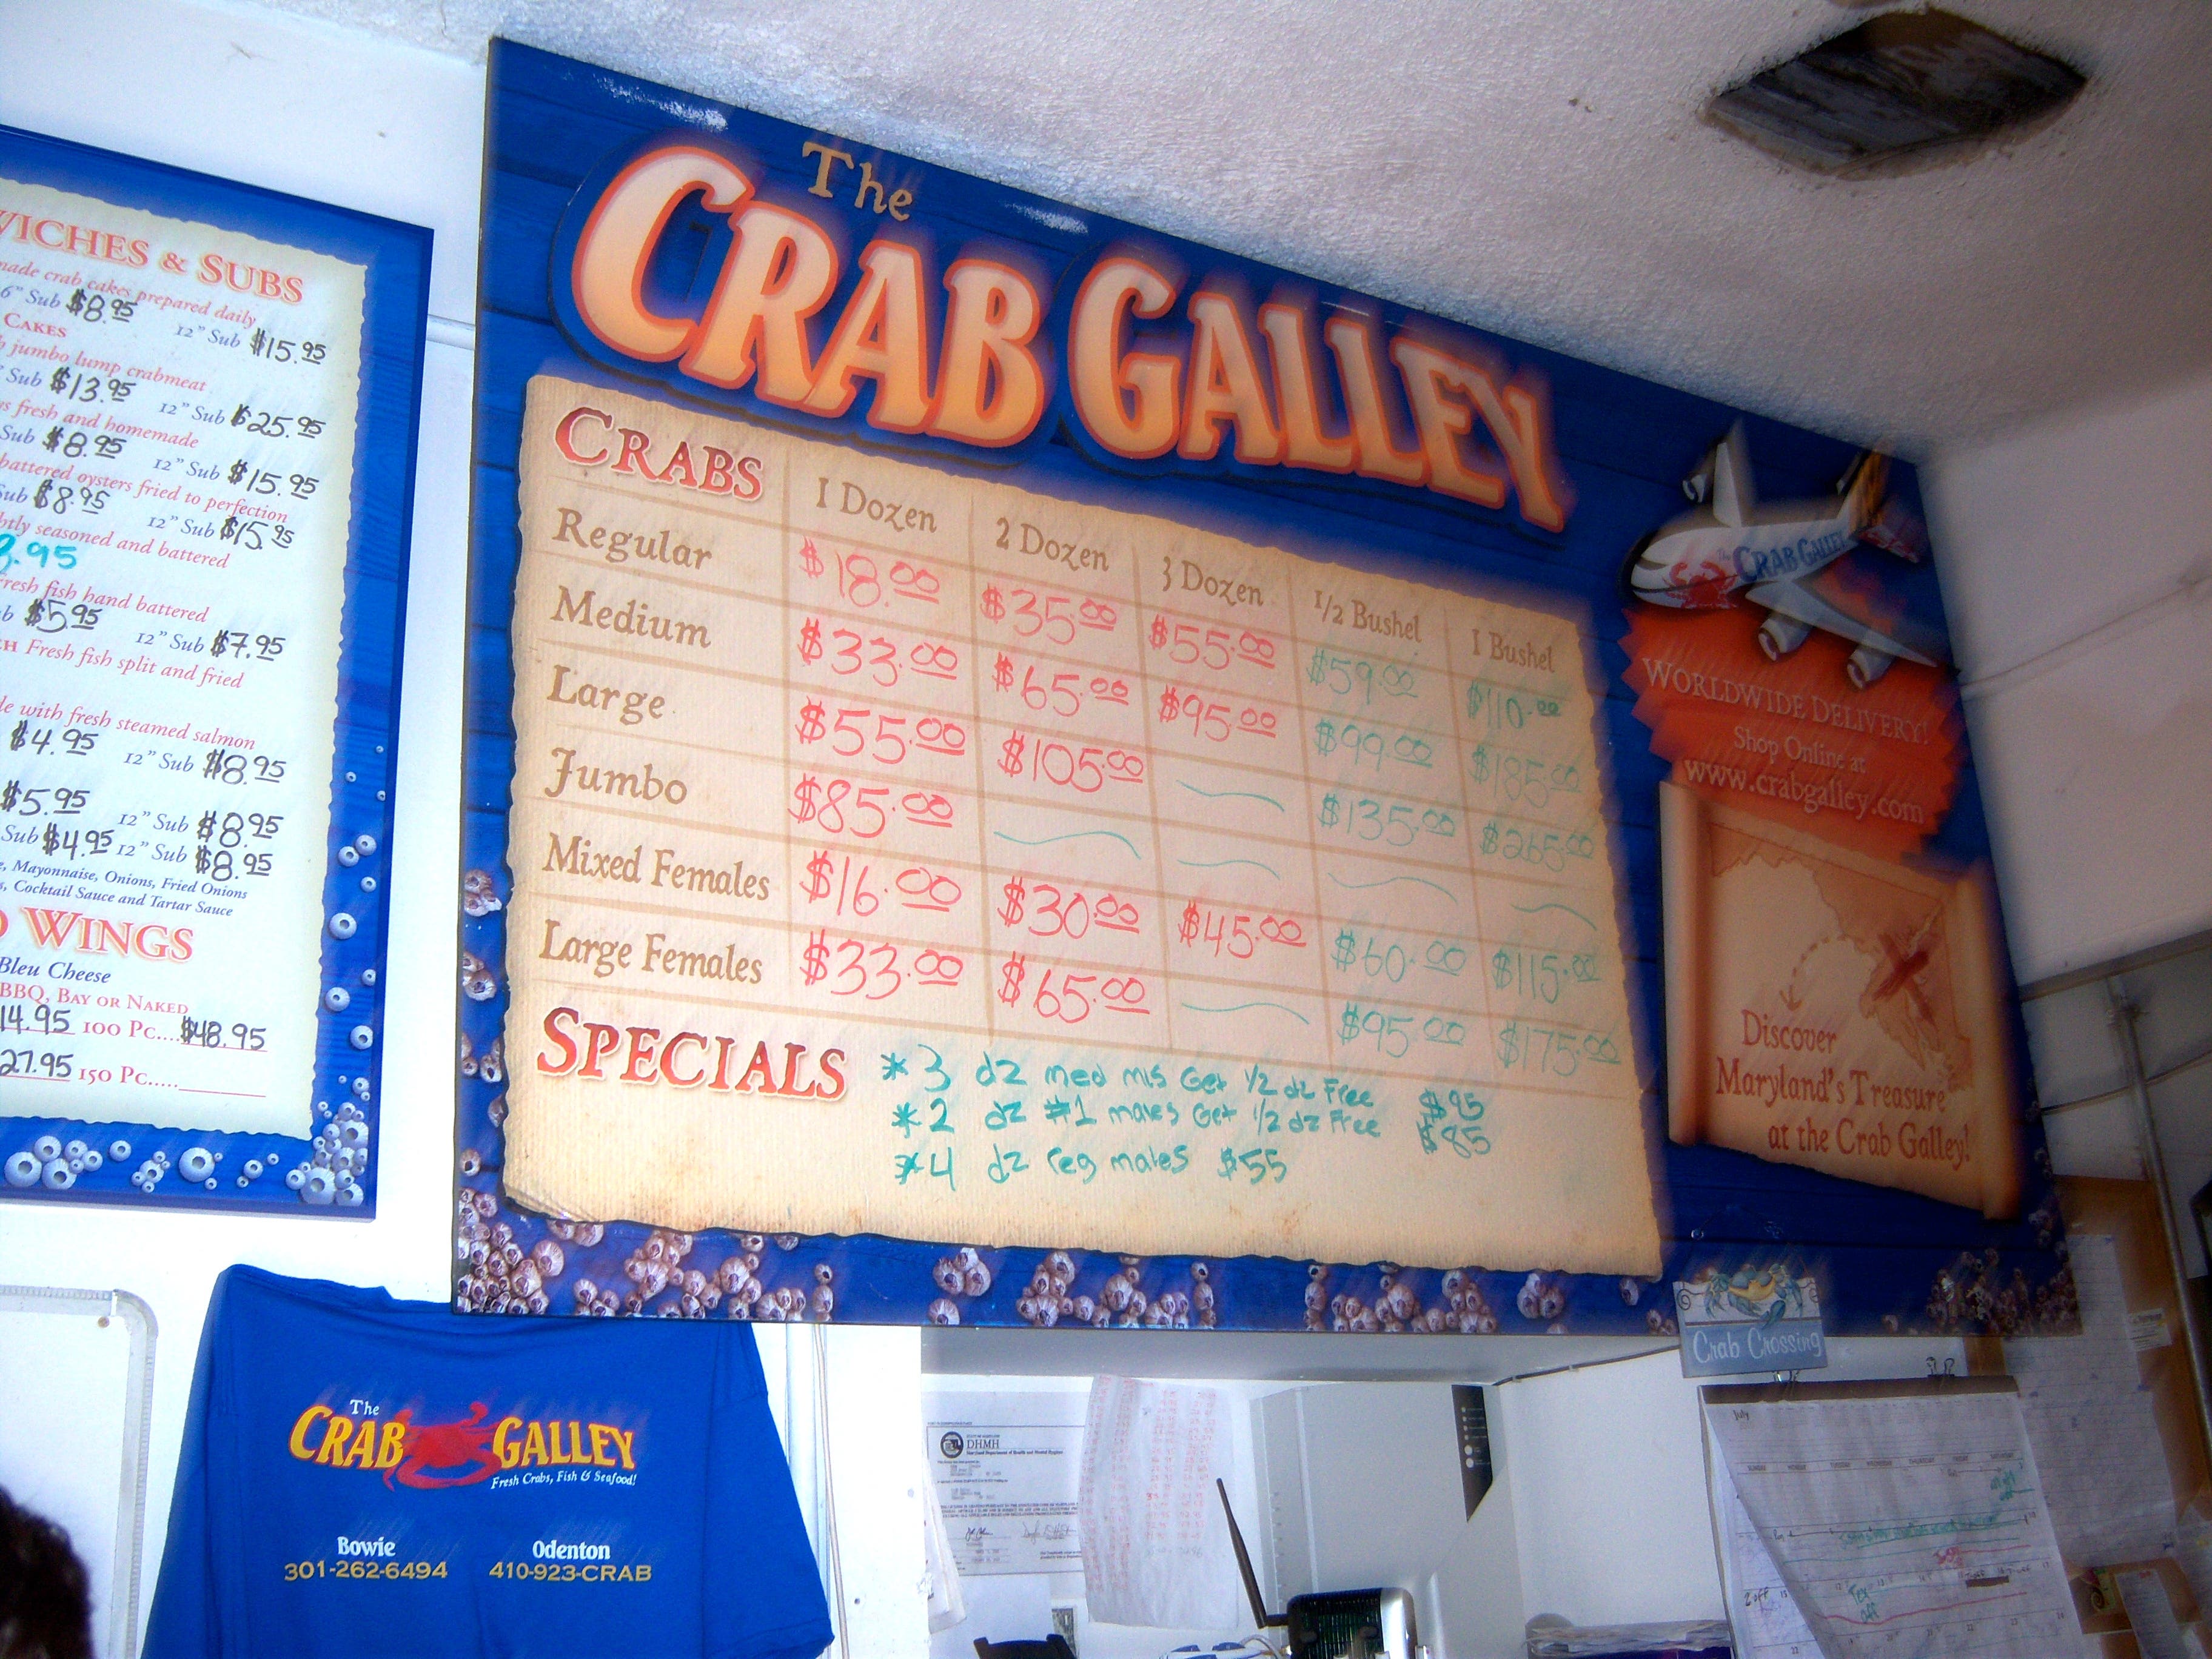 WICHES & SUBS
made crab cakes prepared daily
6" Sub $8.95 12" Sub $15.95
CAKES
jumbo lump crabmeat
Sub $13.95 12" Sub $25.95
fresh and homemade
Sub $8.95 12" Sub $15.95
battered oysters fried to perfection
Sub $8.95 12" Sub $15.95
seasoned and battered
8.95
fresh fish hand battered
$5.95 12" Sub $7.95
Fresh fish split and fried
with fresh steamed salmon
$4.95 12" Sub $8.95
$5.95 12" Sub $8.95
Sub $4.95 12" Sub $8.95
Mayonnaise, Onions, Fried Onions
Cocktail Sauce and Tartar Sauce
WINGS
Bleu Cheese
BBQ, BAY OR NAKED
14.95 100 Pc....$48.95
27.95 150 Pc.....
The
CRAB GALLEY
CRABS 1 Dozen 2 Dozen 3 Dozen 1/2 Bushel 1 Bushel
Regular $18.00 $35.00 $55.00 $59.00 $110.00
Medium $33.00 $65.00 $95.00 $99.00 $185.00
Large $55.00 $105.00 $135.00 $265.00
Jumbo $85.00
Mixed Females $16.00 $30.00 $45.00 $60.00 $115.00
Large Females $33.00 $65.00 $95.00 $175.00
SPECIALS
* 3 dz med mls Get 1/2 dz Free $95
* 2 dz #1 males Get 1/2 dz Free $85
* 4 dz reg males $55
The CRAB GALLEY
WORLDWIDE DELIVERY!
Shop Online at
www.crabgalley.com
Discover
Maryland's Treasure
at the Crab Galley!
Crab Crossing
The
CRAB GALLEY
Fresh Crabs, Fish & Seafood!
Bowie Odenton
301-262-6494 410-923-CRAB
DHMH
July